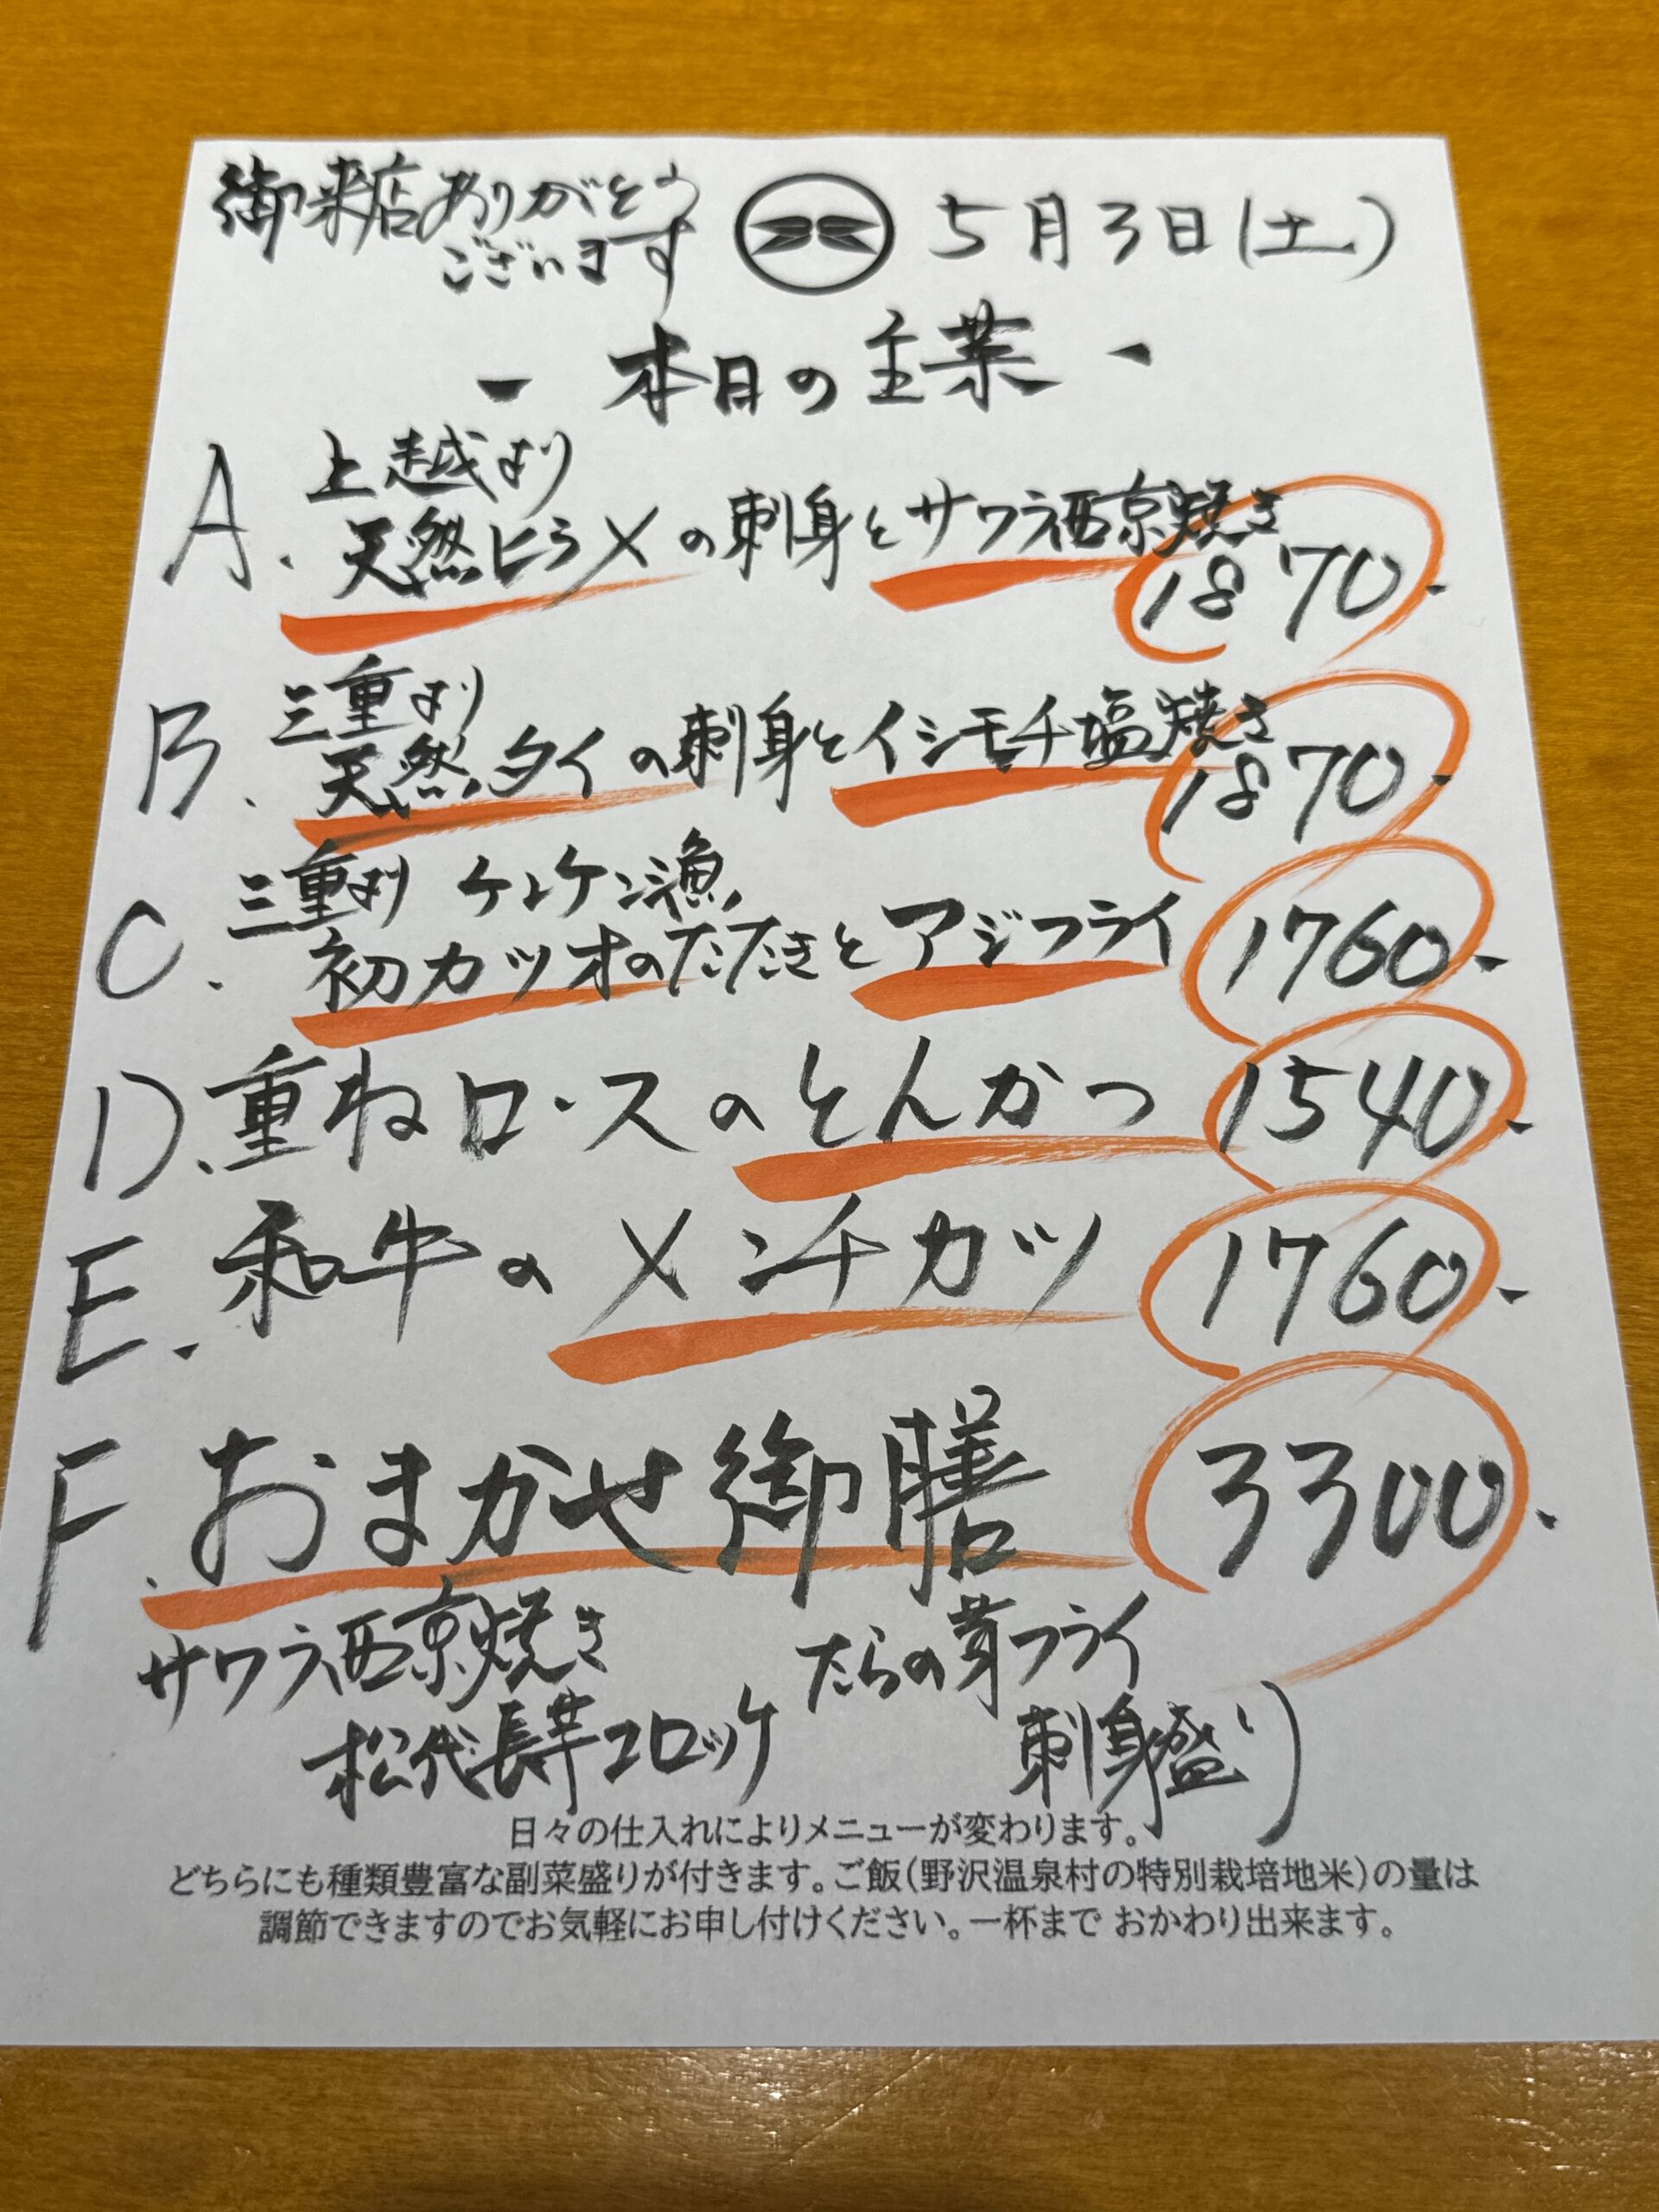 御来店ありがとう
ございます
5月3日(土)
- 本日の主菜 -
A. 上越より
天然ヒラメの刺身とサワラ西京焼き
1870.
B. 三重より
天然タイの刺身とイシモチ塩焼き
1870.
C. 三重より ケンケン漁
初カツオのたたきとアジフライ 1760.
D. 重ねロースのとんかつ 1540.
E. 和牛のメンチカツ 1760.
F. おまかせ御膳 3300.
サワラ西京焼き たらの芽フライ
松代長芋コロッケ 刺身盛り
日々の仕入れによりメニューが変わります。
どちらにも種類豊富な副菜盛りが付きます。ご飯(野沢温泉村の特別栽培地米)の量は
調節できますのでお気軽にお申し付けください。一杯まで おかわり出来ます。